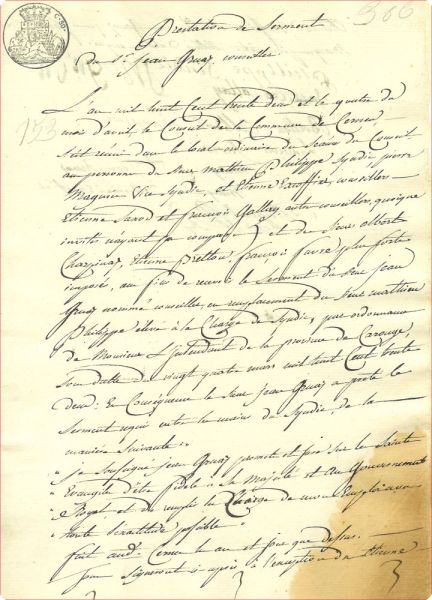 366
Prestation de Serment
de Sr. Jean Gruaz conseiller
193
L'an mil huit Cent trente deux et le quatre du
mois d'avril le Conseil de la Commune de Cernex
s'est réuni dans le local ordinaire des Séances du Conseil
au personnes de Sieurs Mathieu Philippe Syndic, pierre
Magnin Vice Syndic, et Etienne conseillers
Etienne et françois Gallay autre conseillers, quoique
invités n'ayant pu comparoir et de Sieurs albert
Etienne françois favre plus forts
imposés, au fin de recevoir le Serment du Sieur jean
Gruaz nommé conseiller en remplacement du Sieur Mathieu
Philippe élevé à la Charge de Syndic, par ordonnance
de Monsieur L'jntendant de la province de Carouge,
Sous datte du vingt quatre mars mil huit Cent trente
deux: En Conséquence le Sieur jean Gruaz a prêté le
Serment requis entre les mains du Syndic, de la
manière Suivante:
" je Soussigné jean Gruaz promets et jure Sur les Saints
" Evangiles d'être fidèle à Sa Majesté et au Gouvernement
" Royal et de remplir la Charge de mon Emploi avec
" toute l'exactitude possible "
fait aud: Cernex le an et jour que dessus.
Tous Signeront ci après à l'exception de Etienne